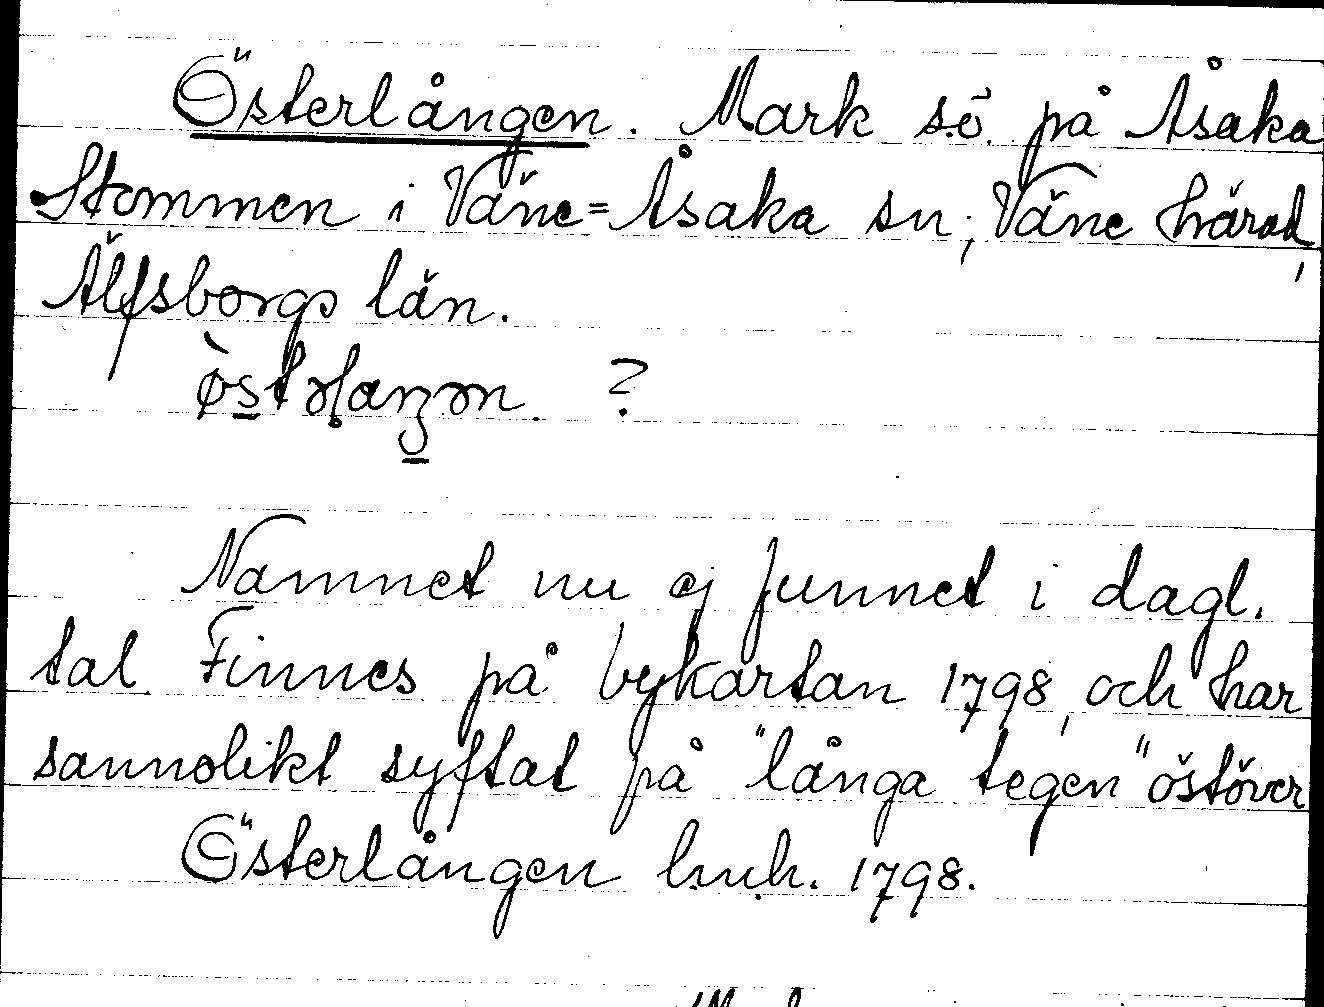 Österlången. Mark sö. på Åsaka
Stommen i Väne-Åsaka sn, Väne härad,
Älfsborgs län.
?
Namnet nu ej funnet i dagl.
tal. Finnes på bykartan 1798, och har
sannolikt syftat på "långa tegen" östöver
Österlången l.m.h. 1798.